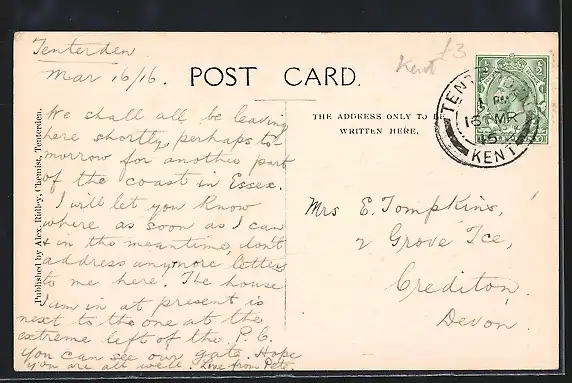 Tenterden
Mar 16/16.
Kent £3
POST CARD.
THE ADDRESS ONLY TO BE
WRITTEN HERE.
TENTERDEN
PM
16 MR
16
KENT
We shall all be leaving
here shortly, perhaps to-
morrow for another part
of the coast in Essex.
I will let you know
where as soon as I can
& in the meantime, don't
address anymore letters
to me here. The house
I am in at present is
next to the one at the
extreme left of the P.C.
You can see our gate. Hope
you are all well. Love from Pete
Mrs E. Tompkins,
2 Grove Tce,
Crediton,
Devon.
Published by Alex. Ridley, Chemist, Tenterden.